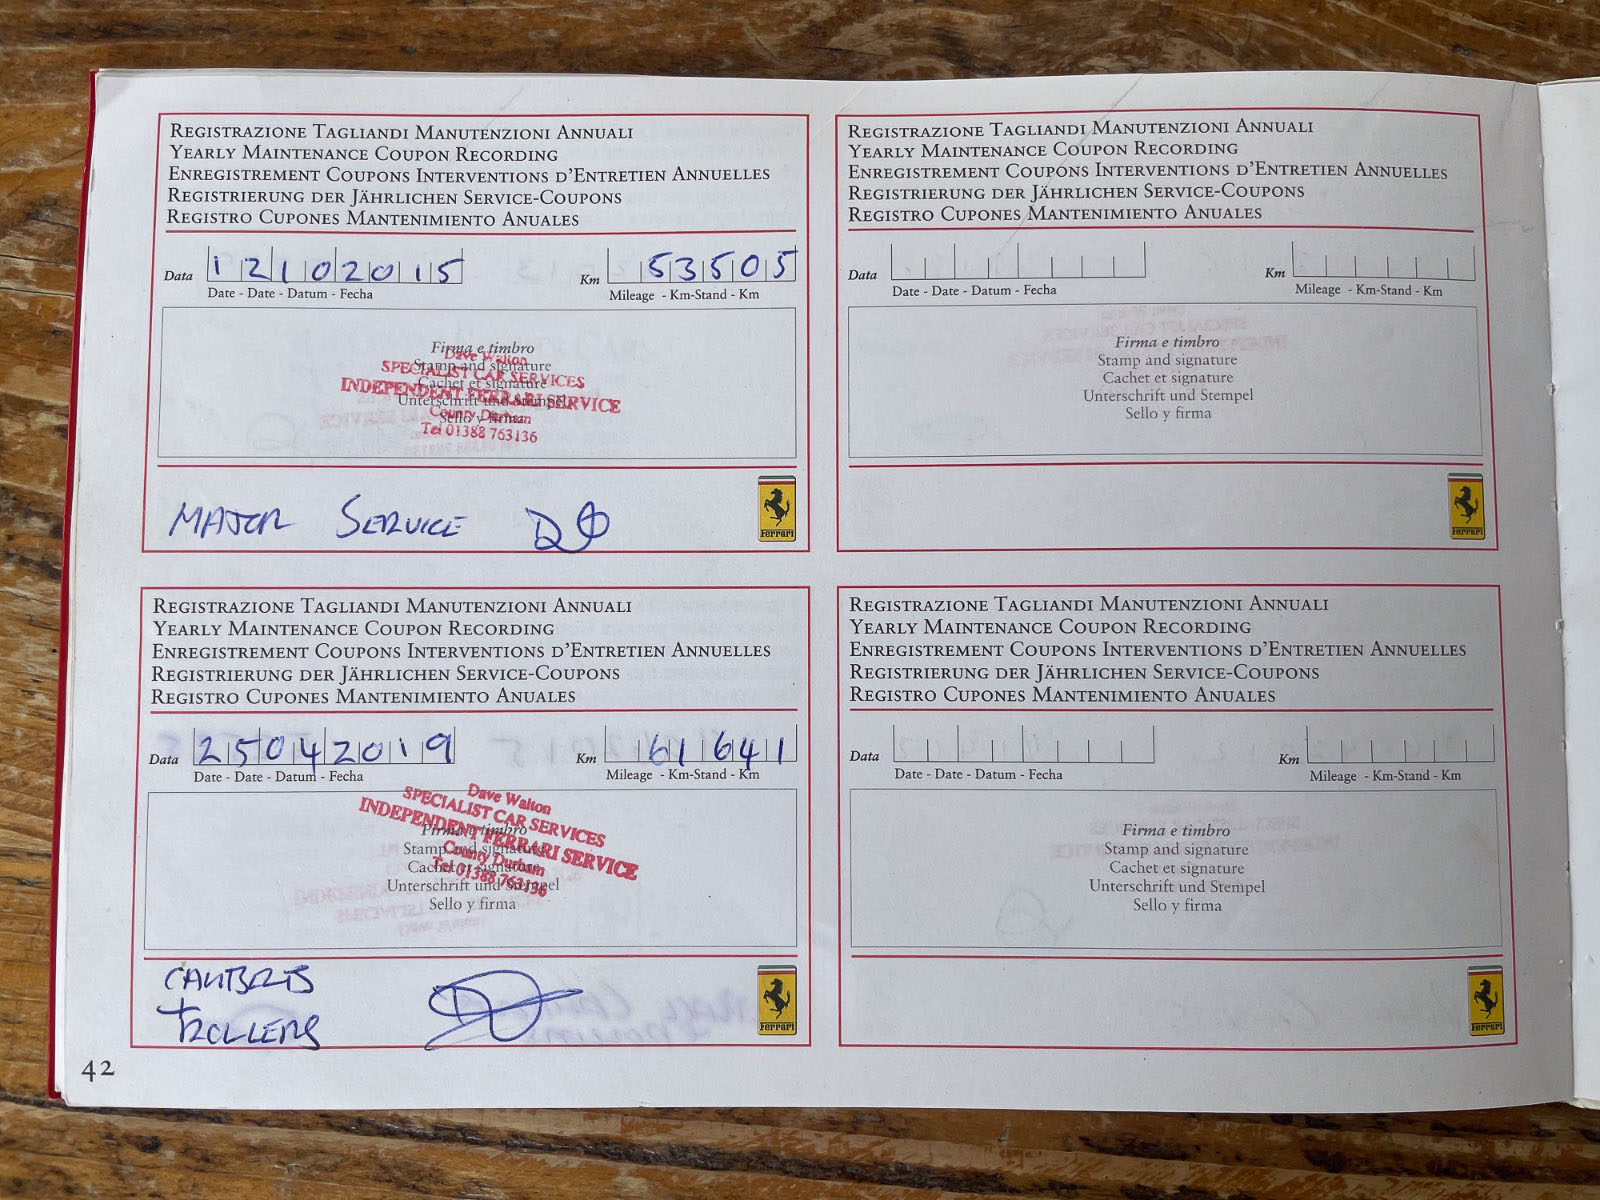 REGISTRAZIONE TAGLIANDI MANUTENZIONI ANNUALI
YEARLY MAINTENANCE COUPON RECORDING
ENREGISTREMENT COUPONS INTERVENTIONS D'ENTRETIEN ANNUELLES
REGISTRIERUNG DER JÄHRLICHEN SERVICE-COUPONS
REGISTRO CUPONES MANTENIMIENTO ANUALES
Data 12102015 Km 53505
Date - Date - Datum - Fecha Mileage - Km-Stand - Km
Firma e timbro
Stamp and signature
Cachet et signature
Unterschrift und Stempel
Sello y firma
Dave Walton
SPECIALIST CAR SERVICES
INDEPENDENT FERRARI SERVICE
County Durham
Tel 01388 763136
MAJOR SERVICE
Ferrari
REGISTRAZIONE TAGLIANDI MANUTENZIONI ANNUALI
YEARLY MAINTENANCE COUPON RECORDING
ENREGISTREMENT COUPONS INTERVENTIONS D'ENTRETIEN ANNUELLES
REGISTRIERUNG DER JÄHRLICHEN SERVICE-COUPONS
REGISTRO CUPONES MANTENIMIENTO ANUALES
Data Km
Date - Date - Datum - Fecha Mileage - Km-Stand - Km
Firma e timbro
Stamp and signature
Cachet et signature
Unterschrift und Stempel
Sello y firma
Ferrari
REGISTRAZIONE TAGLIANDI MANUTENZIONI ANNUALI
YEARLY MAINTENANCE COUPON RECORDING
ENREGISTREMENT COUPONS INTERVENTIONS D'ENTRETIEN ANNUELLES
REGISTRIERUNG DER JÄHRLICHEN SERVICE-COUPONS
REGISTRO CUPONES MANTENIMIENTO ANUALES
Data 25042019 Km 61641
Date - Date - Datum - Fecha Mileage - Km-Stand - Km
Dave Walton
SPECIALIST CAR SERVICES
INDEPENDENT FERRARI SERVICE
County Durham
Tel 01388 763136
Firma e timbro
Stamp and signature
Cachet et signature
Unterschrift und Stempel
Sello y firma
CAMBELTS
+ ROLLERS
Ferrari
REGISTRAZIONE TAGLIANDI MANUTENZIONI ANNUALI
YEARLY MAINTENANCE COUPON RECORDING
ENREGISTREMENT COUPONS INTERVENTIONS D'ENTRETIEN ANNUELLES
REGISTRIERUNG DER JÄHRLICHEN SERVICE-COUPONS
REGISTRO CUPONES MANTENIMIENTO ANUALES
Data Km
Date - Date - Datum - Fecha Mileage - Km-Stand - Km
Firma e timbro
Stamp and signature
Cachet et signature
Unterschrift und Stempel
Sello y firma
Ferrari
42